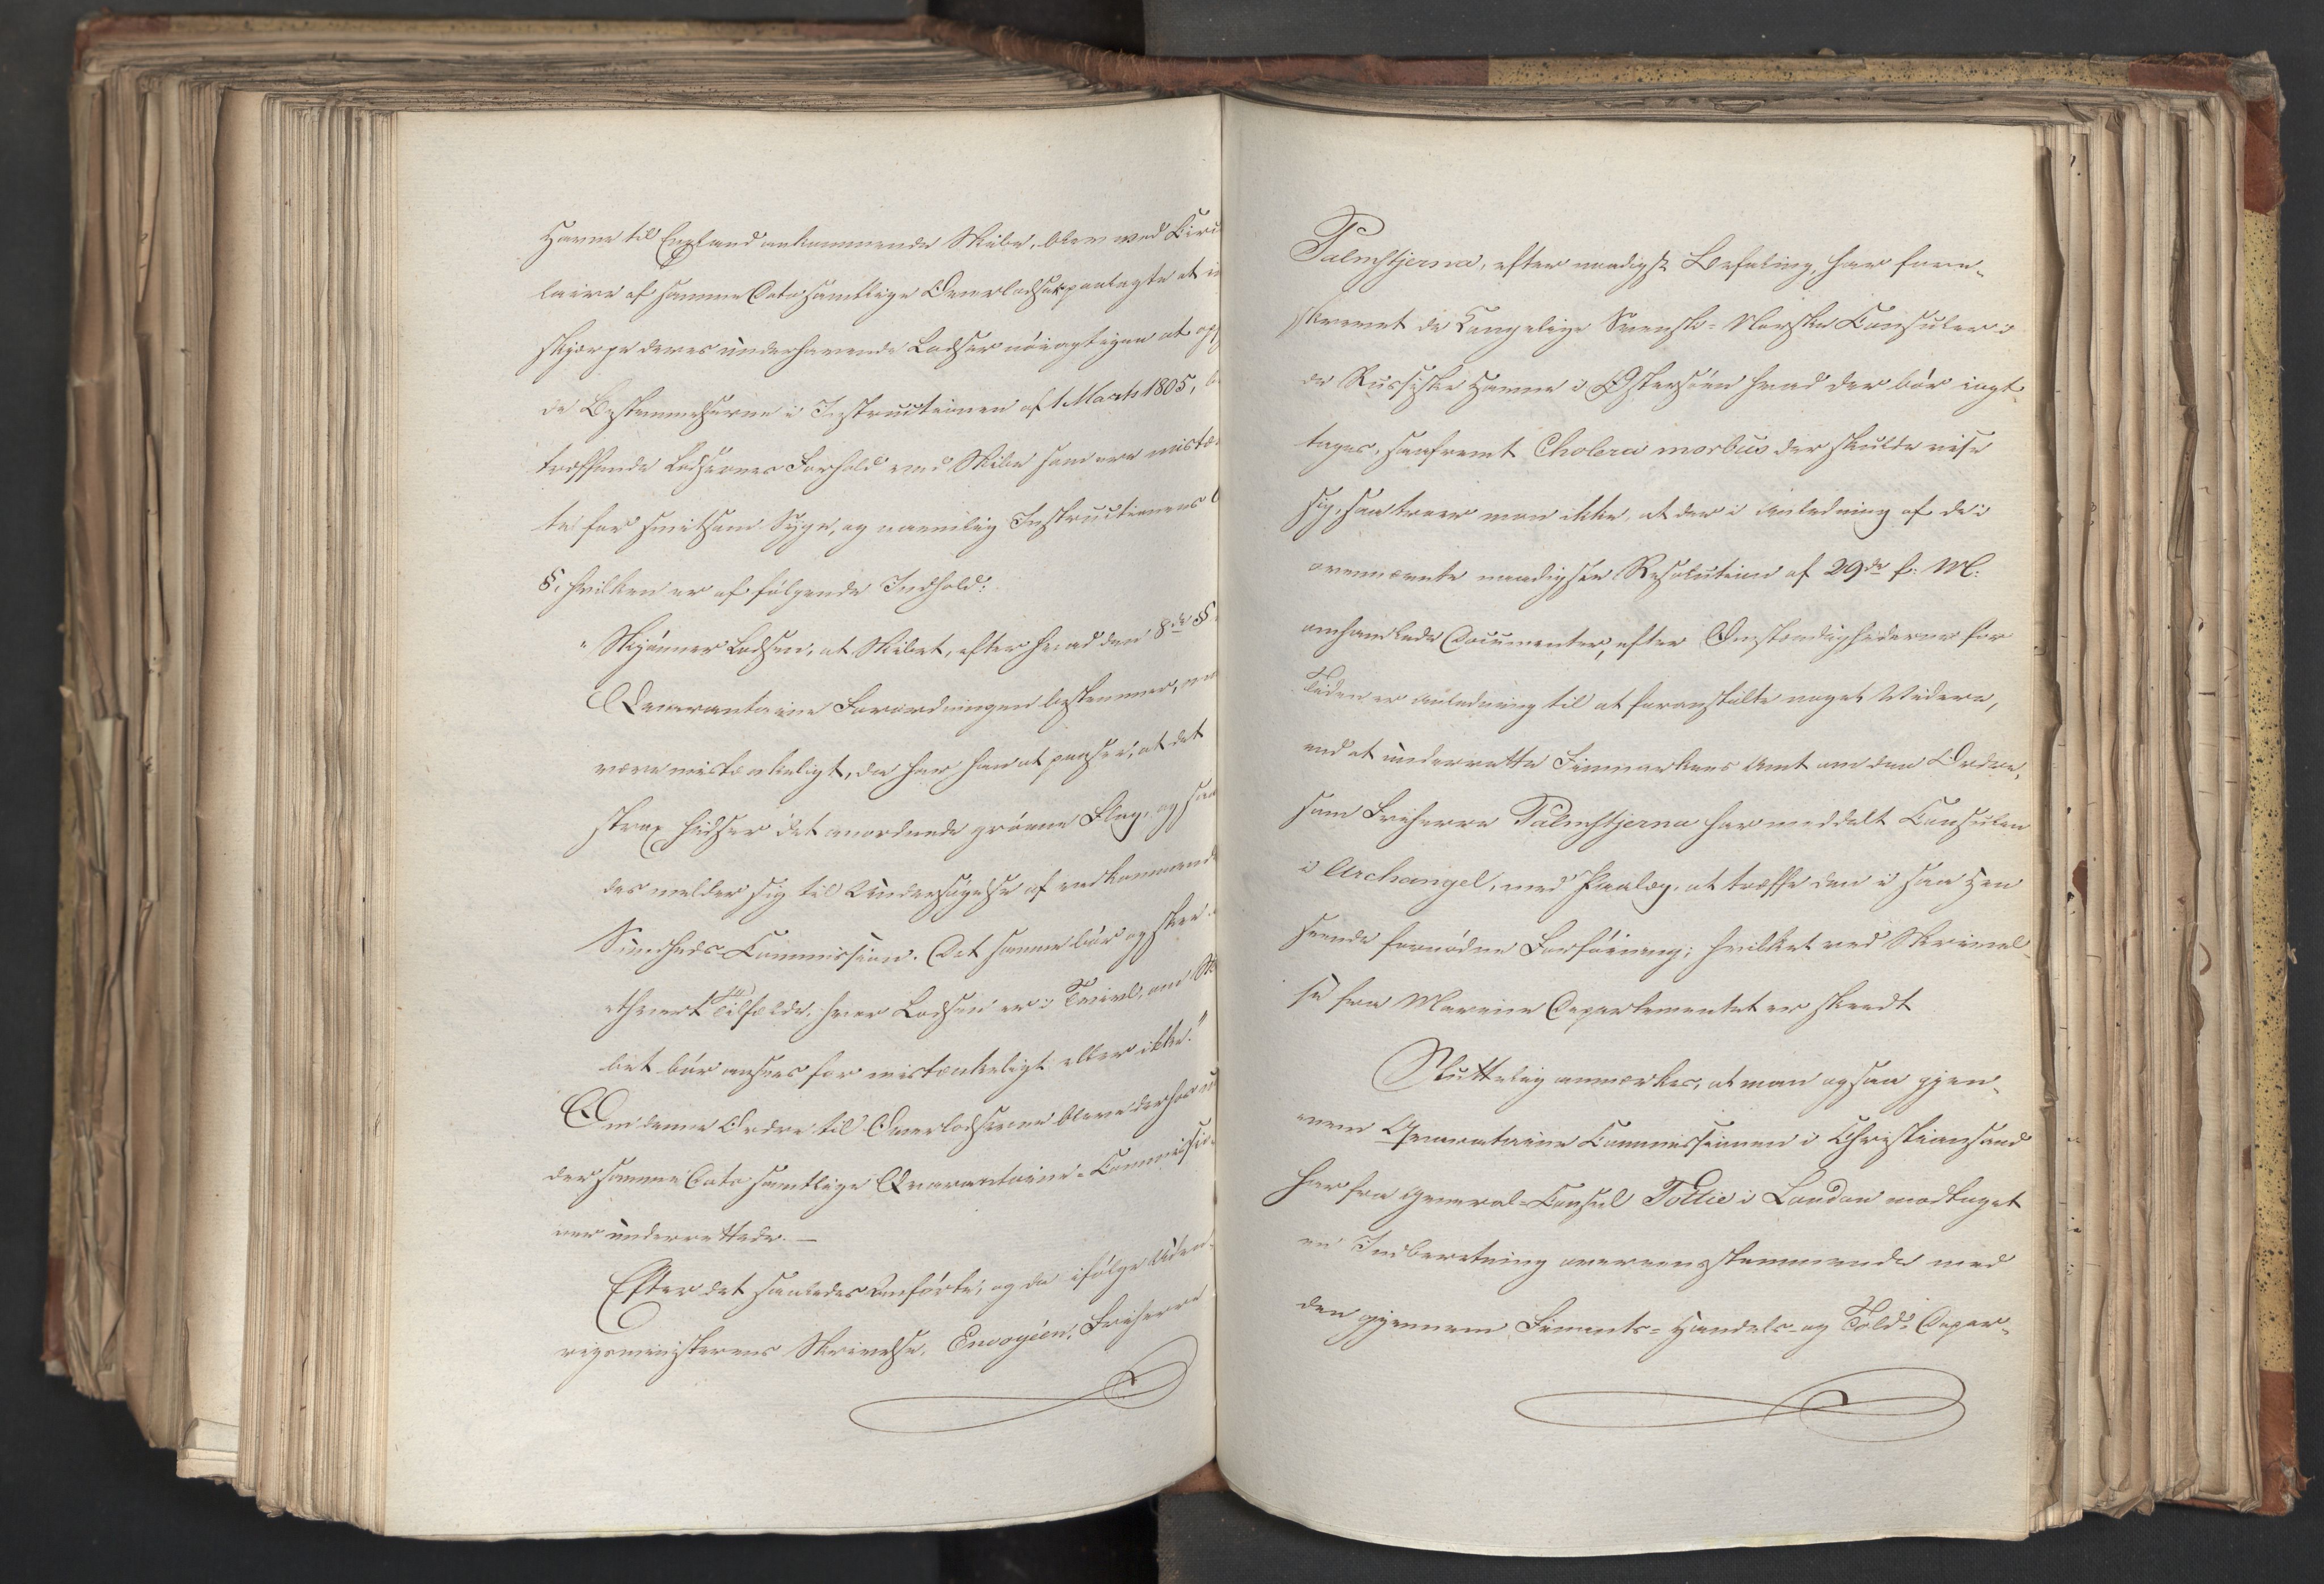 Havne til England ankommende Skibe, blev ved Circu
laire af samme Dato samtlige Overlodser paalagte at
skjærpe deres underhavende Lodser nöiagtigen at
de Bestemmelserne i Instructionen af 1 Marts 1805,
træffende Lodsernes Forhold mod Skibe som ere mistæ
te for smitsom Syge, og navnlig Instructionens
§, hvilken er af følgende Indhold:
"Skjönner Lodsen, at Skibet, efter hvad den 8de §
Qvarantaine Forordningen bestemmer,
være mistænkeligt, da har han at paasee, at det
strax hidser det anordnede grönne Flag, og saa
des melder sig til Undersøgelse af vedkommende
Sundheds-Commission. Det samme bör og skee
ethvert Tilfælde, hvor Lodsen er i Tvivl, om Ski
bet bör ansees for mistænkeligt eller ikke."
Om denne Ordre til Overlodserne bleve derhos
der samme Dato samtlige Qvarantaine-Commissio
ner underrettede.—
Efter det saaledes Anförte, og da ifølge Uden-
rigsministerens Skrivelse, Envoyéen, Friherre
Palmstjerna, efter naadigst Befaling, har fore-
skrevet de Kongelige Svensk-Norske Consuler i
de Russiske Havne i Østersöen hvad der bör iagt-
tages, saafremt Cholera morbus der skulde vise
sig, saa troer man ikke, at der i Anledning af de i
ovennævnte naadigste Resolution af 29de f: M:
omhandlede Documenter, efter Omstændighederne for
Tiden er Anledning til at foranstalte noget Videre,
end at underrette Finmarkens Amt om den Ordre,
som Friherre Palmstjerna har meddelt Consulen
i Archangel, med Paalæg, at træffe den i saa Hen
seende fornödne Forföining; hvilket ved Skrivel-
se fra Marine Departementet er skeedt
Sluttelig anmærkes, at man ogsaa gjen-
nem Qvarantaine Commissionen i Christiansand
har fra General-Consul Tottie i London modtaget
en Indberetning overeensstemmende med
den gjennem Finants- Handels- og Told-Depar-